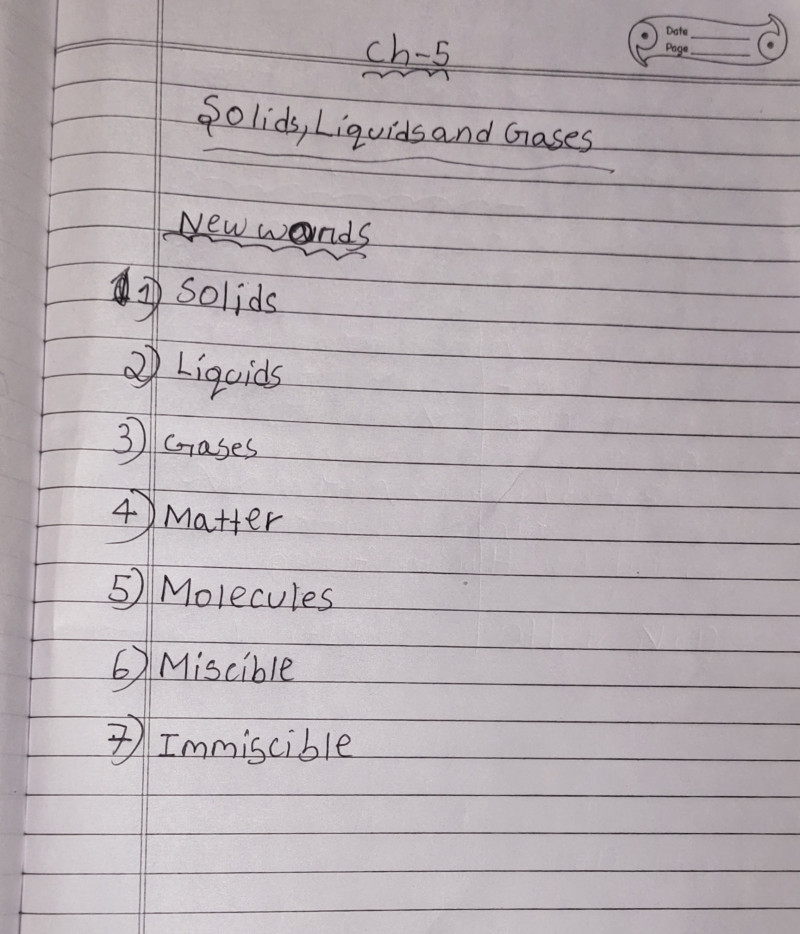 Date
Page
Ch-5
Solids, Liquids and Gases
New words
1) Solids
2) Liquids
3) Gases
4) Matter
5) Molecules
6) Miscible
7) Immiscible